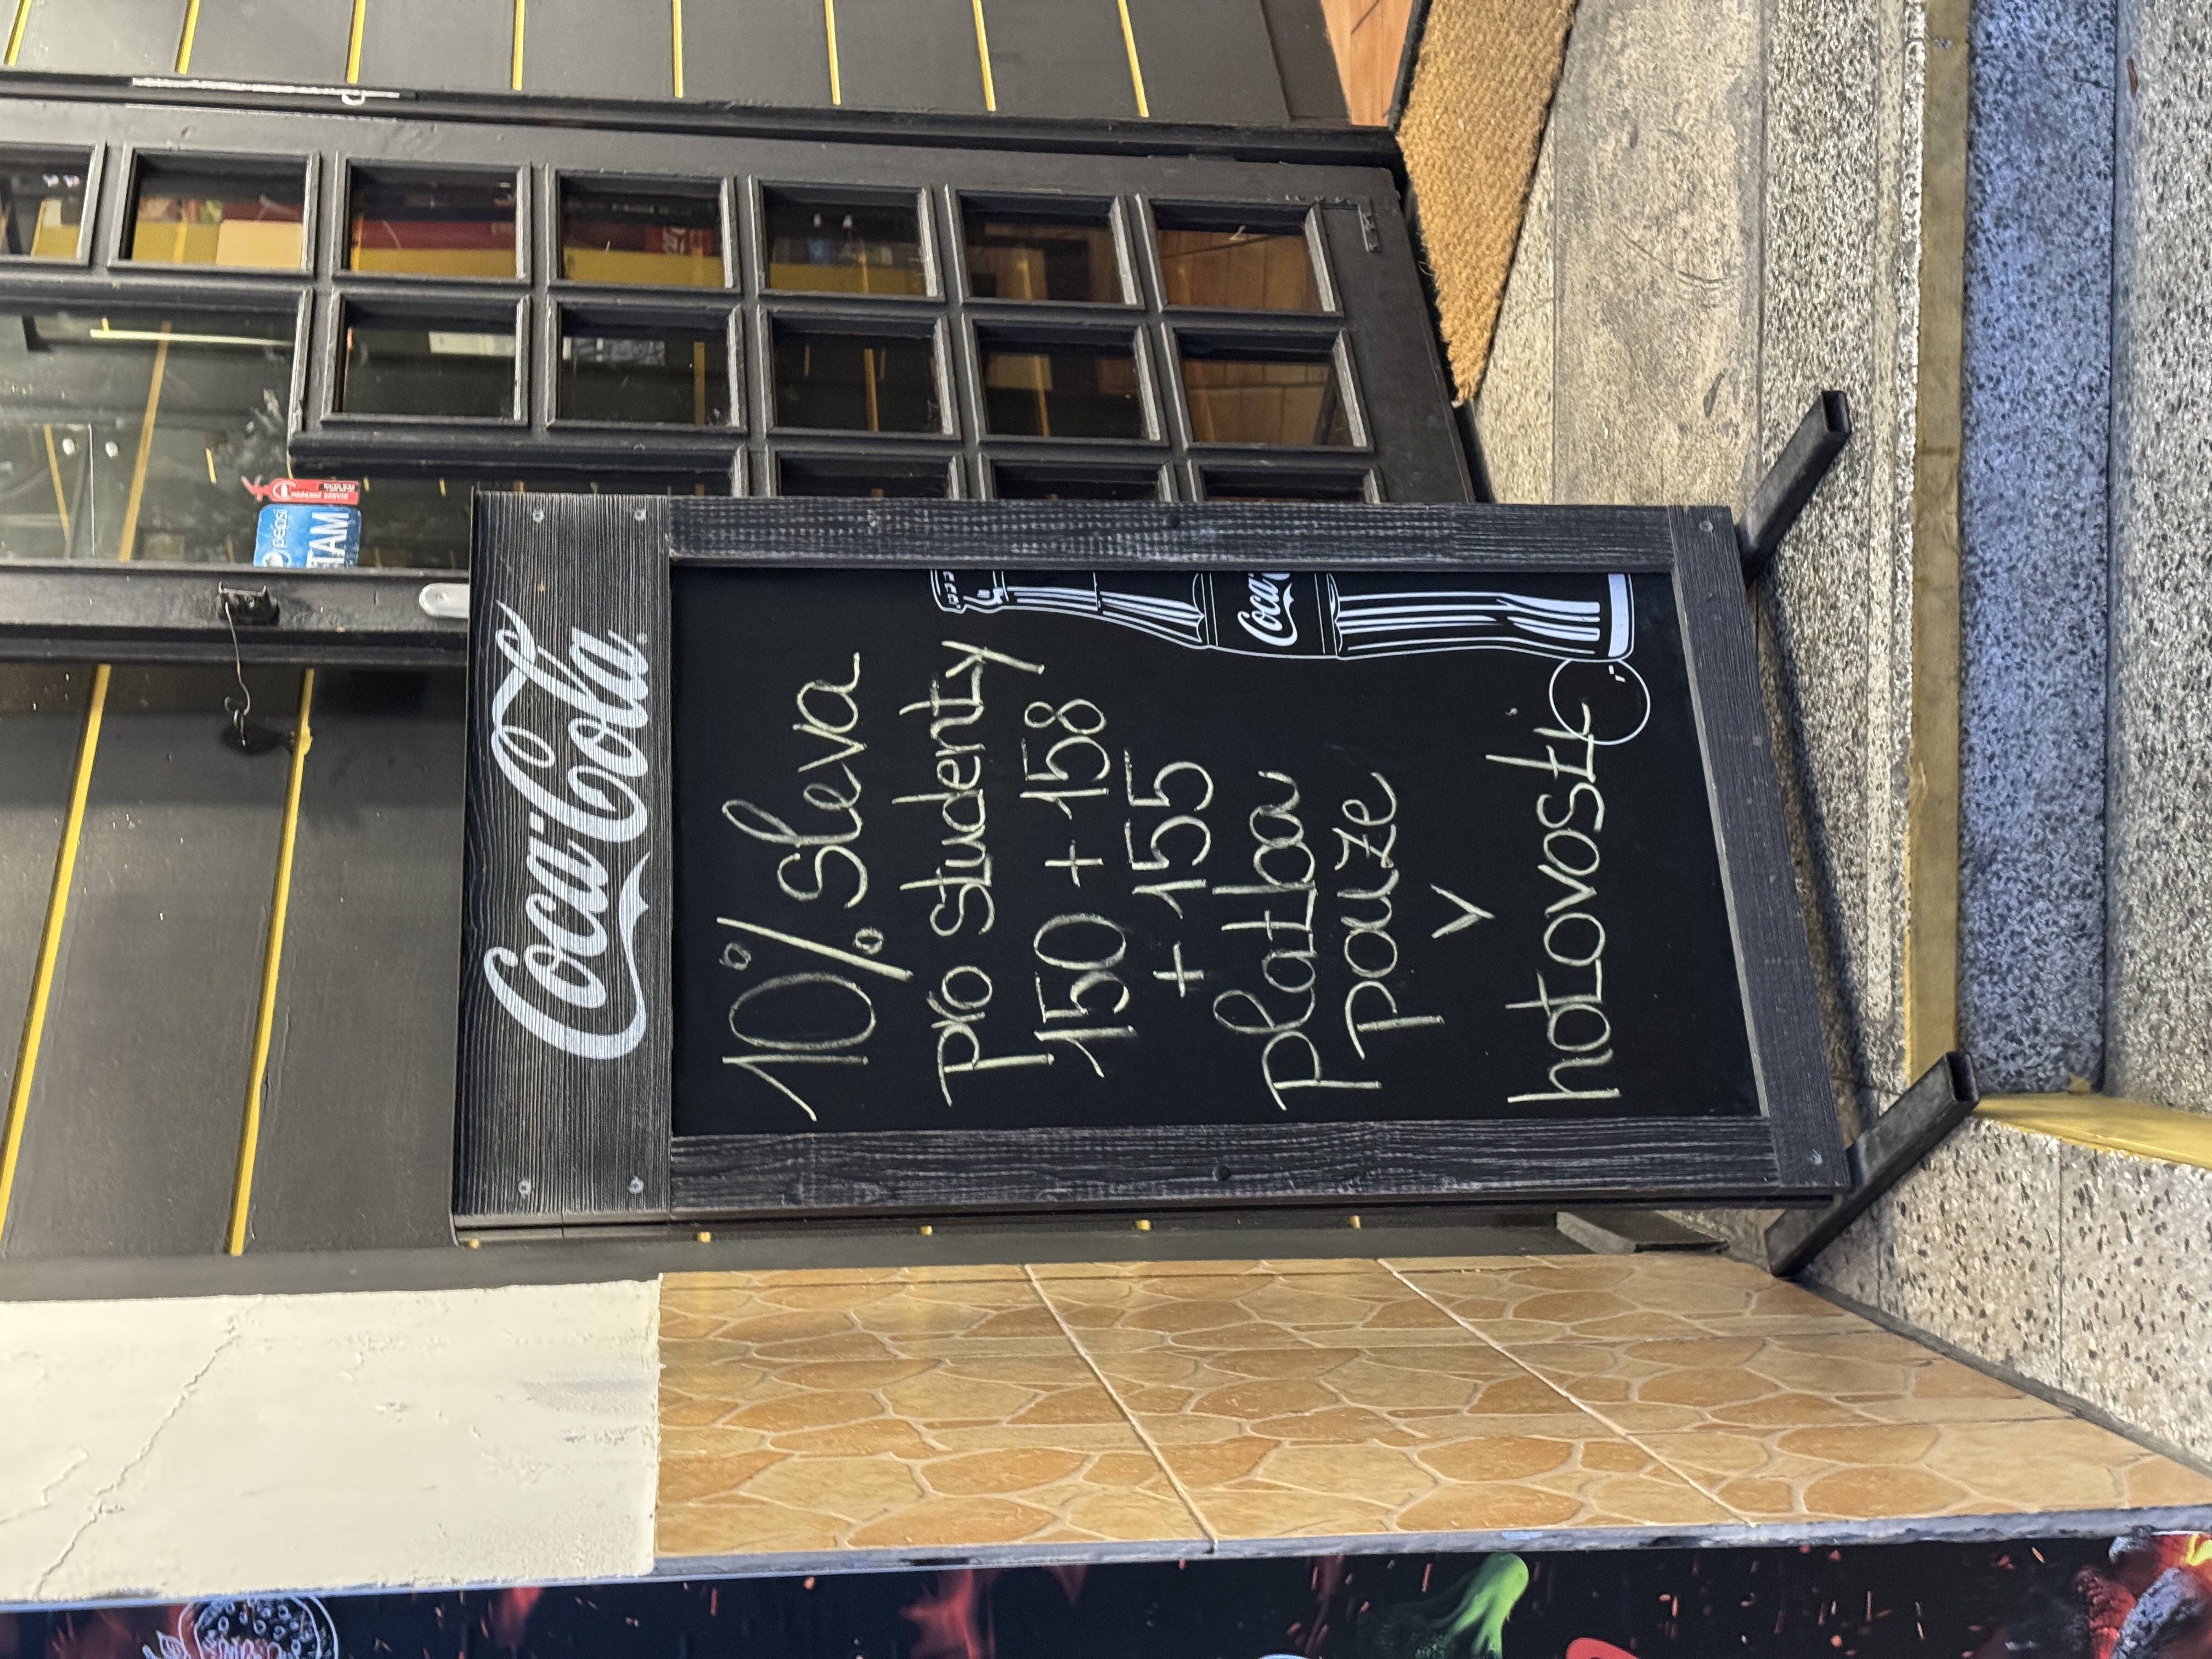 Coca-Cola
10% sleva
pro studenty
150 + 158
+ 155
platba
pouze
v
hotovosti
Coca
pepsi
TAM